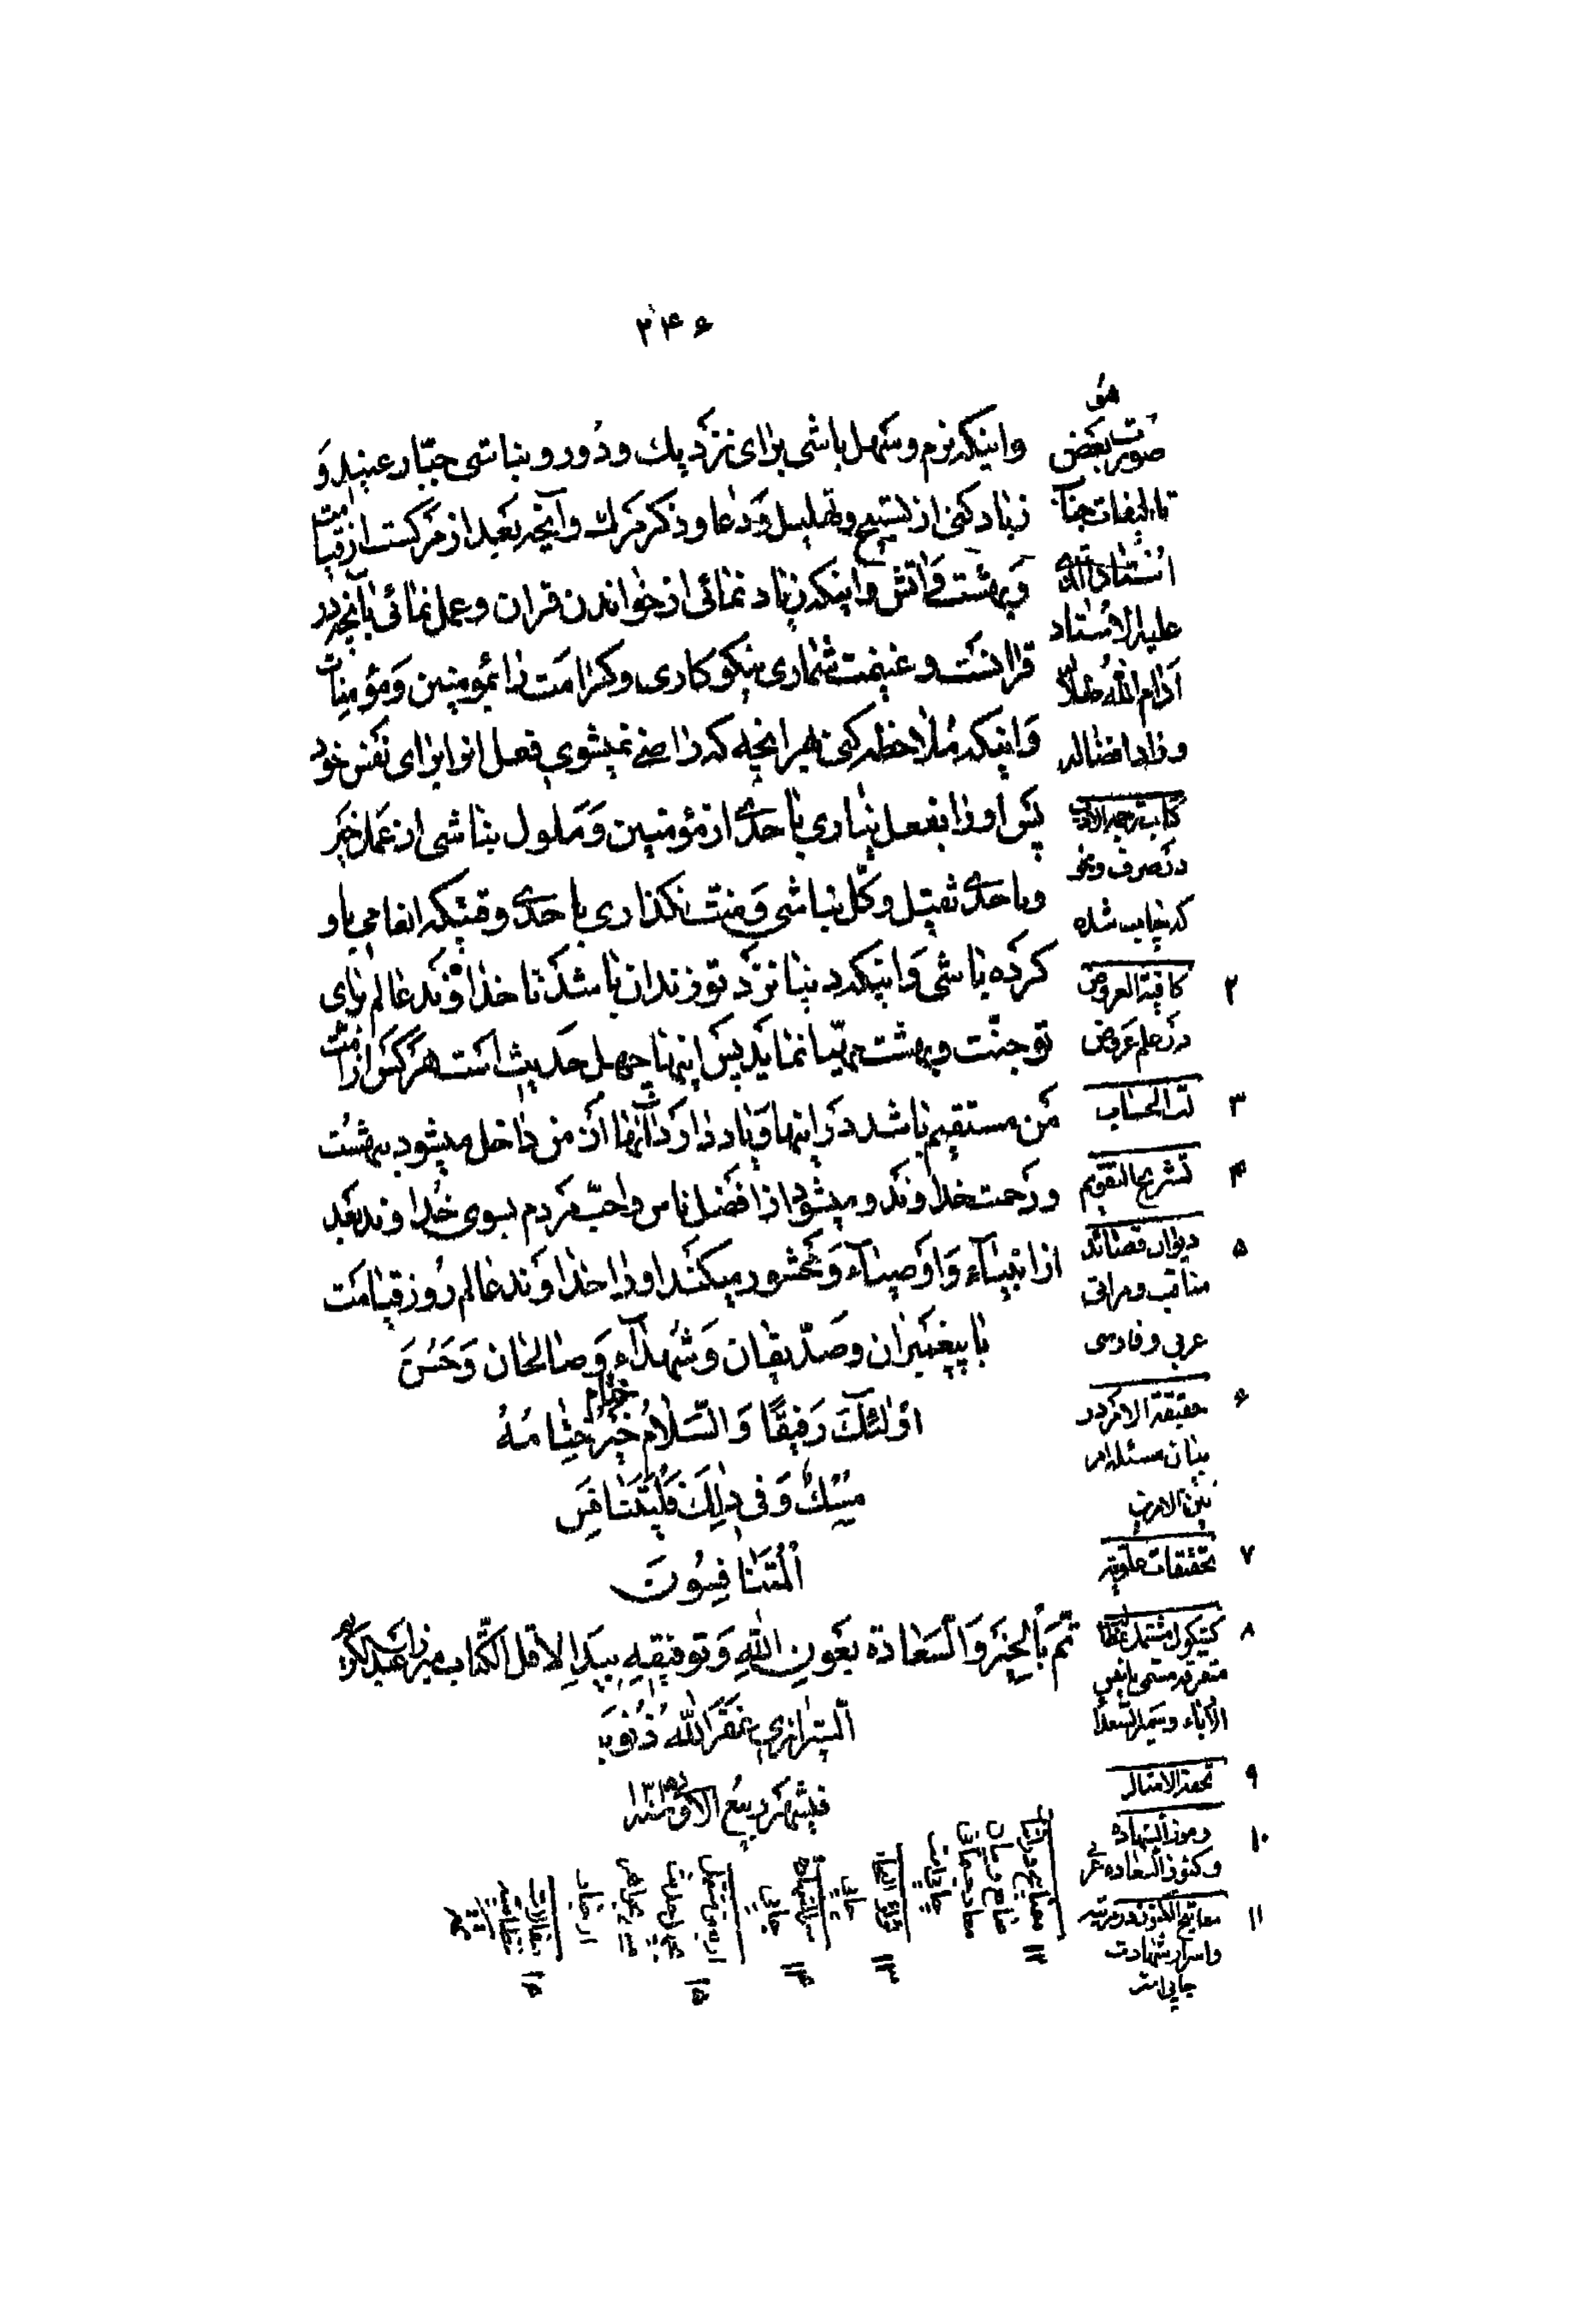 ۲۴۶
واینکه نرم و سهل باشی برای نزدیك و دور و نباشی جبّار عنید و
زیاد کنی از تسبیح و تهلیل و دعا و ذکر مرك و آنچه بعد از مرگست از قیامت
و بهشت و آتش و اینکه زیاد نمائی از خواندن قران و عمل نمائی بآنچه در
قرانست و غنیمت شماری نیکوکاری و کرامت را بمؤمنین و مؤمنات
و اینکه ملاحظه کنی بهر انچه که راضے نمیشوی فعل انرا برای نفس خود
پس او را بفعل نیاری باحدی از مؤمنین و ملول نباشی از عمل خیر
و باحدی ثقیل و کَلّ نباشی و منت نکذاری باحدی وقتیکه انعامی باو
کرده باشی و اینکه دنیا نزد تو زندان باشد تا خداوند عالم برای
تو جنّت و بهشت مهیّا نماید پس اینها چهل حدیث است هر کس از امّت
من مستقیم باشد در اینها و یاد دارد آنها را از من داخل میشود بهشت
و رحمت خداوند و میشود از افضل ناس و احبّ مردم بسوی خداوند بعد
از انبیاء و اوصیاء و محشور میکند او را خداوند عالم روز قیامت
با پیغمبران و صدّیقان و شهداء و صالحان وَحَسُنَ
اوُلٰئِكَ رَفیقًا وَالسَّلامُ خَیرُ خِتام خِتامُهُ
مِسْكٌ وَفی ذٰلِكَ فَلْیَتَنافَسِ
الْمُتَنافِسُونَ
تمّ بالخیر و السّعادة بعون الله و توفیقه بید الاقل الکتّاب میرزا عبدالکریم
الشیرازی غفر الله ذنوبه
فی شهر ربیع الاول سنه
هو
صورت بعض
تالیفات جناب
علیه الاستاد
ادام الله ظلاله
و زاد افضاله
در صرف و نحو
که بچاپ شده
۲ کافیة العروض
در علم عروض
۳ لب الحساب
۴ تشریح التقویم
۵ دیوان قصائد
مناقب و مراثی
عربی و فارسی
۶ حقیقة الامر در
بیان مسئله امر
بین الامرین
۷ تحقیقات علویه
۸ کشکول مشتمل
متفرقه مسمی بانیس
الادباء و سمیر السعداء
۹ تحفة الامثال
۱۰ رموز الشهاده
و کنوز السعاده
۱۱ مفاتیح الکنوز در مرثیه
و اسرار شهادت
چاپی است
۱۲
۱۳
۱۴
۱۵